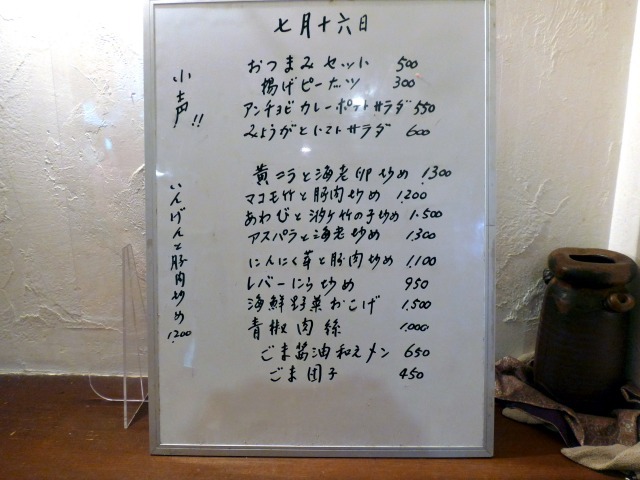 七月十六日
おつまみセット 500
揚げピーナッツ 300
アンチョビカレーポテトサラダ 550
みょうがとトマトサラダ 600
黄ニラと海老卵炒め 1.300
マコモ竹と豚肉炒め 1.200
あわびと汐ケ竹の子炒め 1.500
アスパラと海老炒め 1.300
にんにく芽と豚肉炒め 1.100
レバーにら炒め 950
海鮮野菜おこげ 1.500
青椒肉絲 1.000
ごま醤油和えメン 650
ごま団子 450
小声!!
いんげんと豚肉炒め 1.200